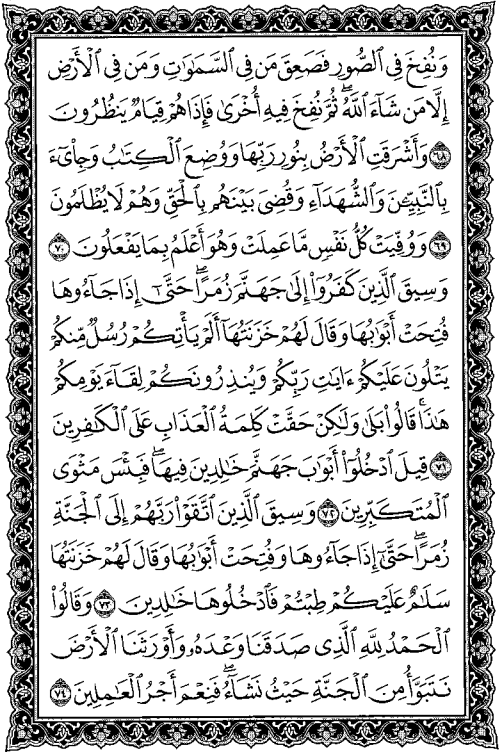 وَنُفِخَ فِي ٱلصُّورِ فَصَعِقَ مَن فِي ٱلسَّمَٰوَٰتِ وَمَن فِي ٱلۡأَرۡضِ
إِلَّا مَن شَآءَ ٱللَّهُۖ ثُمَّ نُفِخَ فِيهِ أُخۡرَىٰ فَإِذَا هُمۡ قِيَامٞ يَنظُرُونَ
٦٨ وَأَشۡرَقَتِ ٱلۡأَرۡضُ بِنُورِ رَبِّهَا وَوُضِعَ ٱلۡكِتَٰبُ وَجِاْيٓءَ
بِٱلنَّبِيِّـۧنَ وَٱلشُّهَدَآءِ وَقُضِيَ بَيۡنَهُم بِٱلۡحَقِّ وَهُمۡ لَا يُظۡلَمُونَ
٦٩ وَوُفِّيَتۡ كُلُّ نَفۡسٖ مَّا عَمِلَتۡ وَهُوَ أَعۡلَمُ بِمَا يَفۡعَلُونَ ٧٠
وَسِيقَ ٱلَّذِينَ كَفَرُوٓاْ إِلَىٰ جَهَنَّمَ زُمَرًاۖ حَتَّىٰٓ إِذَا جَآءُوهَا
فُتِحَتۡ أَبۡوَٰبُهَا وَقَالَ لَهُمۡ خَزَنَتُهَآ أَلَمۡ يَأۡتِكُمۡ رُسُلٞ مِّنكُمۡ
يَتۡلُونَ عَلَيۡكُمۡ ءَايَٰتِ رَبِّكُمۡ وَيُنذِرُونَكُمۡ لِقَآءَ يَوۡمِكُمۡ
هَٰذَاۚ قَالُواْ بَلَىٰ وَلَٰكِنۡ حَقَّتۡ كَلِمَةُ ٱلۡعَذَابِ عَلَى ٱلۡكَٰفِرِينَ
٧١ قِيلَ ٱدۡخُلُوٓاْ أَبۡوَٰبَ جَهَنَّمَ خَٰلِدِينَ فِيهَاۖ فَبِئۡسَ مَثۡوَى
ٱلۡمُتَكَبِّرِينَ ٧٢ وَسِيقَ ٱلَّذِينَ ٱتَّقَوۡاْ رَبَّهُمۡ إِلَى ٱلۡجَنَّةِ
زُمَرًاۖ حَتَّىٰٓ إِذَا جَآءُوهَا وَفُتِحَتۡ أَبۡوَٰبُهَا وَقَالَ لَهُمۡ خَزَنَتُهَا
سَلَٰمٌ عَلَيۡكُمۡ طِبۡتُمۡ فَٱدۡخُلُوهَا خَٰلِدِينَ ٧٣ وَقَالُواْ
ٱلۡحَمۡدُ لِلَّهِ ٱلَّذِي صَدَقَنَا وَعۡدَهُۥ وَأَوۡرَثَنَا ٱلۡأَرۡضَ
نَتَبَوَّأُ مِنَ ٱلۡجَنَّةِ حَيۡثُ نَشَآءُۖ فَنِعۡمَ أَجۡرُ ٱلۡعَٰمِلِينَ ٧٤